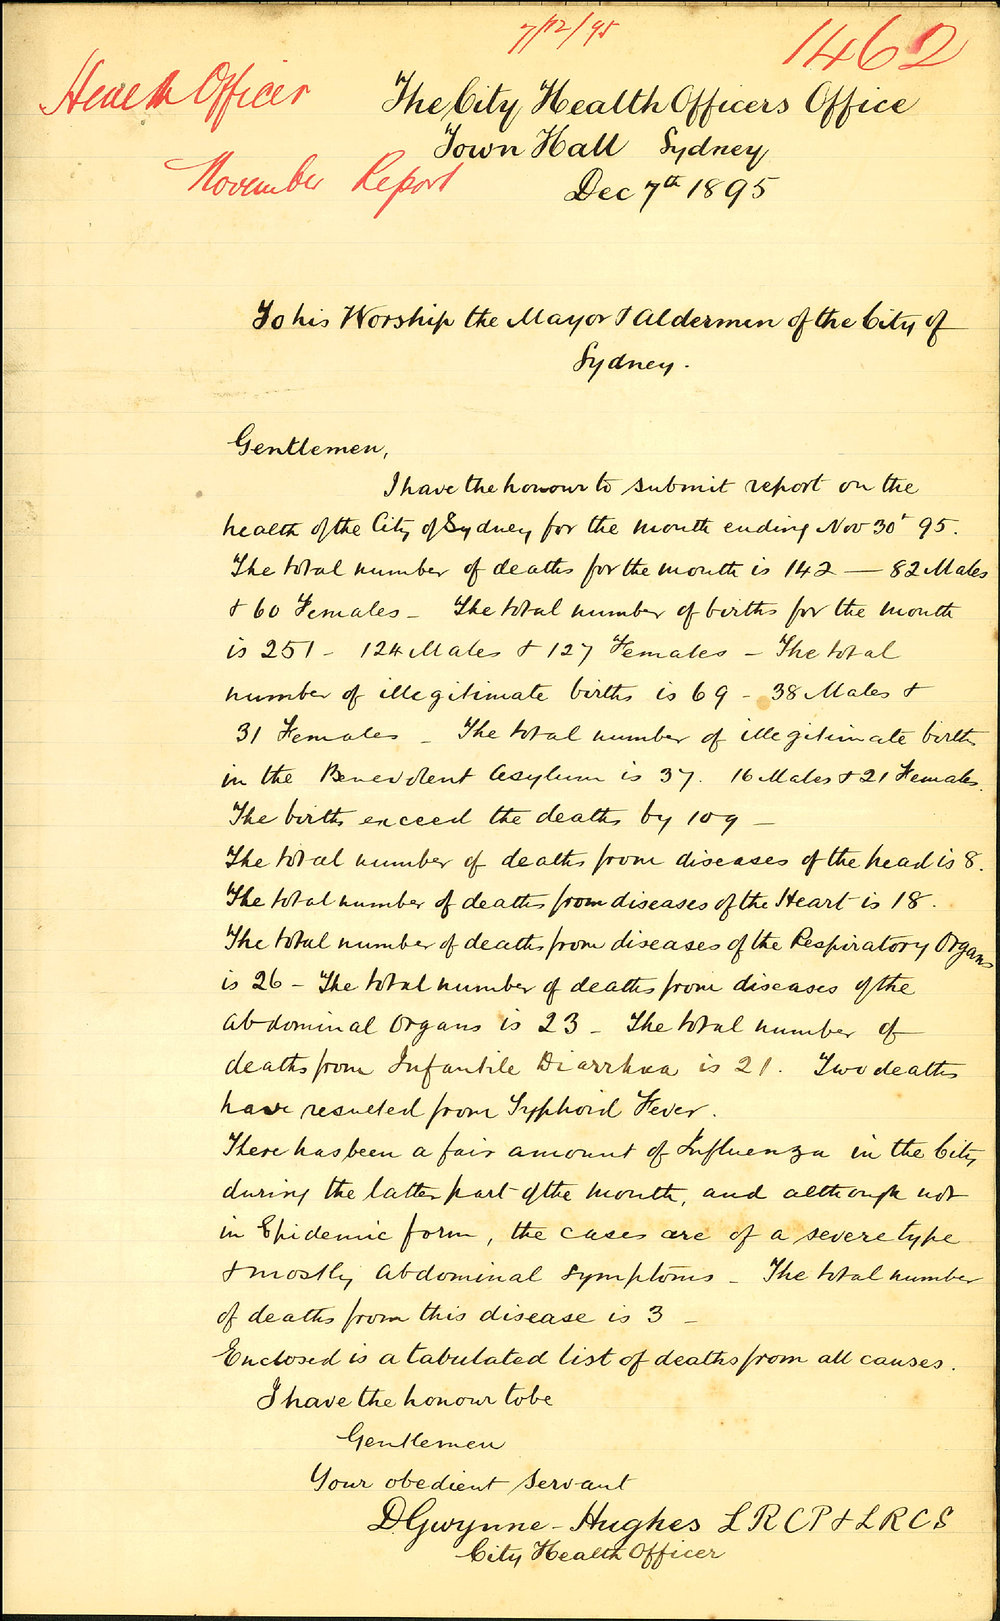 7/12/95
1462
Health Officer
The City Health Officers Office
Town Hall Sydney
November Report
Dec 7th 1895
To his Worship the Mayor & Aldermen of the City of
Sydney.
Gentlemen,
I have the honour to submit report on the
health of the City of Sydney for the month ending Nov 30t 95.
The total number of deaths for the month is 142 — 82 Males
& 60 Females - The total number of births for the month
is 251 - 124 Males & 127 Females - The total
number of illegitimate births is 69 - 38 Males &
31 Females - The total number of illegitimate births
in the Benevolent Asylum is 37. 16 Males & 21 Females.
The births exceed the deaths by 109 -
The total number of deaths from diseases of the head is 8.
The total number of deaths from diseases of the Heart is 18.
The total number of deaths from diseases of the Respiratory Organs
is 26 - The total number of deaths from diseases of the
Abdominal Organs is 23 - The total number of
deaths from Infantile Diarrhœa is 21. Two deaths
have resulted from Typhoid Fever.
There has been a fair amount of Influenza in the City
during the latter part of the month, and although not
in Epidemic form, the cases are of a severe type
& mostly Abdominal symptoms - The total number
of deaths from this disease is 3 -
Enclosed is a tabulated list of deaths from all causes.
I have the honour to be
Gentlemen
Your obedient servant
D. Gwynne-Hughes LRCP & LRCS
City Health Officer